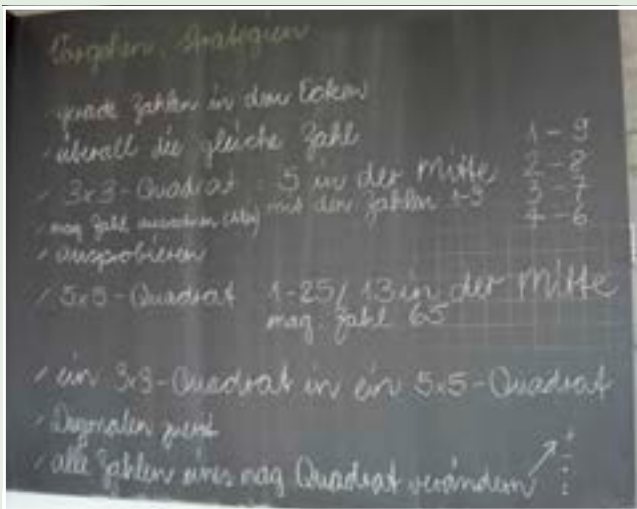 Vorgehen, Strategien
gerade Zahlen in den Ecken
überall die gleiche Zahl
3x3-Quadrat : 5 in der Mitte
mit den Zahlen 1-9
mag Zahl
ausprobieren
1 - 9
2 - 8
3 - 7
4 - 6
5x5-Quadrat 1-25/ 13 in der Mitte
mag. Zahl 65
ein 3x3-Quadrat in ein 5x5-Quadrat
Diagonalen zuerst
alle Zahlen eines mag Quadrat verändern